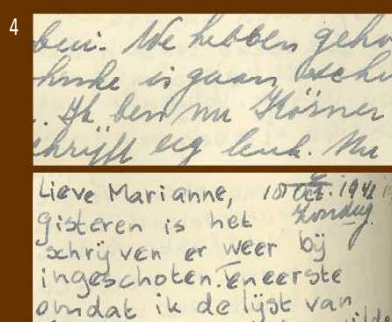 4
ben. We hebben geho
hnke is gaan sch
.. Ik ben nu Körner
chrijft erg leuk. Nu
Lieve Marianne, 10 Oct. 1942
Zondag
gisteren is het
schrijven er weer bij
ingeschoten. Teneerste
omdat ik de lijst van